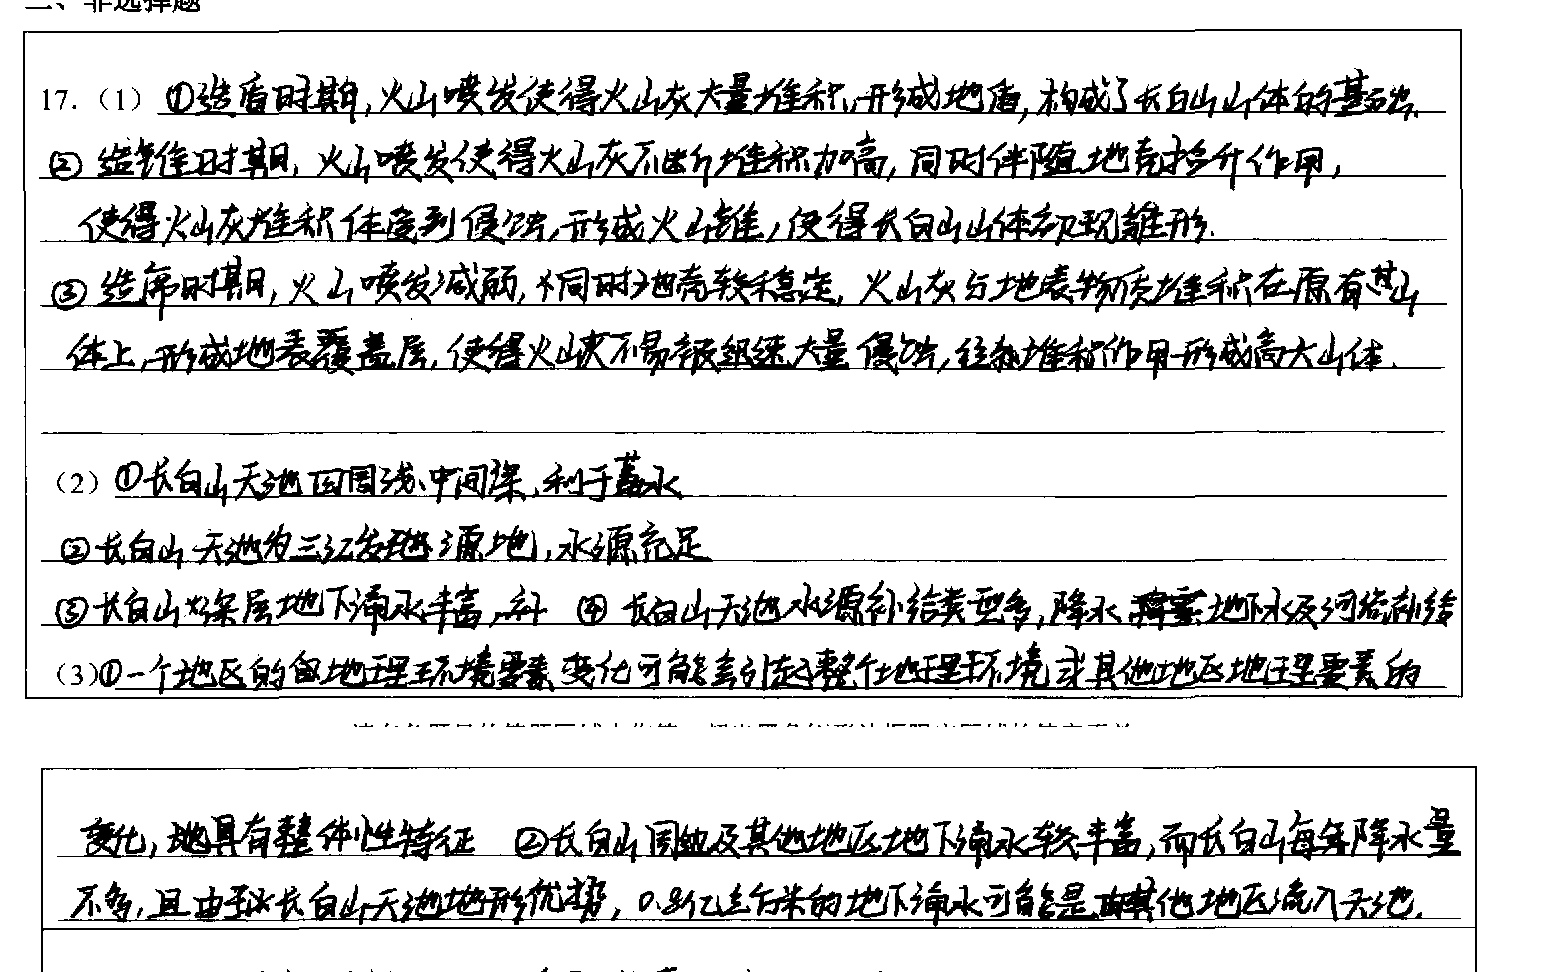 二、非选择题
17.（1）①造盾时期,火山喷发使得火山灰大量堆积,形成地盾,构成了长白山山体的基础.
② 造锥时期,火山喷发使得火山灰不断堆积加高,同时伴随地壳抬升作用,
使得火山灰堆积体受到侵蚀,形成火山锥,使得长白山山体初现雏形.
③ 造席时期,火山喷发减弱,同时地壳较稳定,火山灰与地表物质堆积在原有山
体上,形成地表覆盖层,使得火山灰不易被大量侵蚀,堆积作用形成高大山体.
（2）①长白山天池四周浅、中间深,利于蓄水
②长白山天池为三江发源地,水源充足
③长白山深层地下涌水丰富, ④ 长白山天池水源补给类型多,降水 地下水及河流补给
（3）①一个地区的地理环境要素变化可能会引起整个地理环境或其他地区地理要素的
变化,具有整体性特征 ②长白山周边及其他地区地下涌水较丰富,而长白山每年降水量
不多,且由于长白山天池地形优势, 0.8亿立方米的地下涌水可能是由其他地区流入天池.